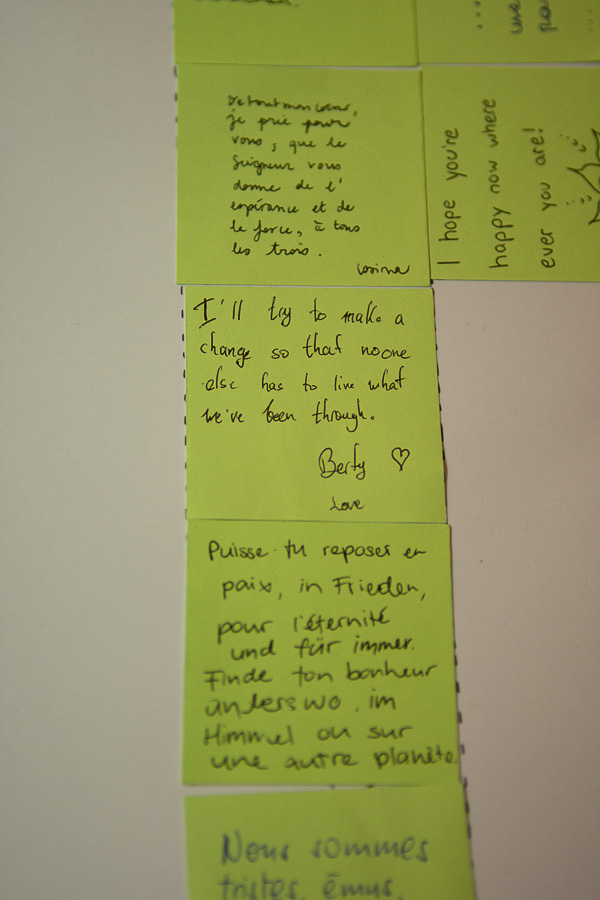 De tout mon coeur,
je prie pour
vous, que le
Seigneur vous
donne de l'
espérance et de
la force, à tous
les trois.
I hope you're
happy now where
ever you are!
I'll try to make a
change so that noone
else has to live what
we've been through.
Berty ♡
Love
Puisse-tu reposer en
paix, in Frieden,
pour l'éternité
und für immer.
Finde ton bonheur
anderswo, im
Himmel ou sur
une autre planète.
Nous sommes
tristes, émus,